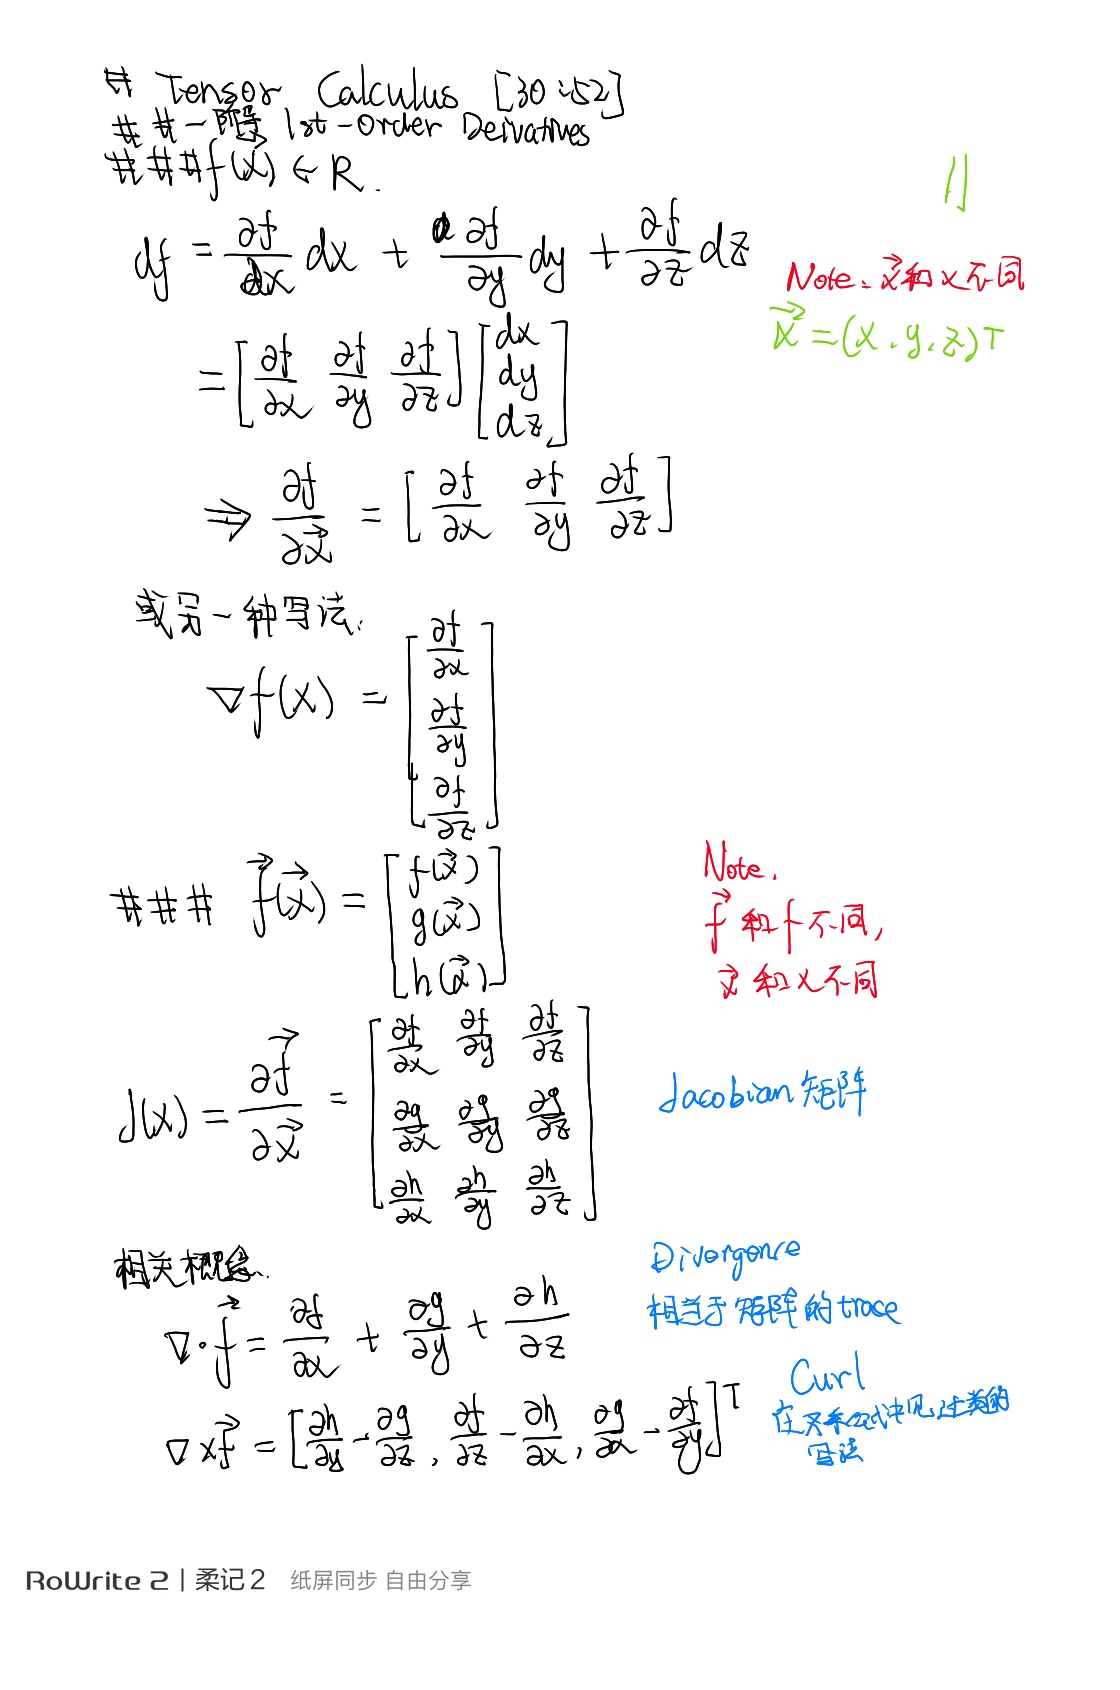 # Tensor Calculus [30:52]
## 一阶导 1st-Order Derivatives
### f(x⃗) ∈ R.
df = ∂f/∂x dx + ∂f/∂y dy + ∂f/∂z dz
Note: x⃗和x不同
x⃗ = (x, y, z)T
= [∂f/∂x ∂f/∂y ∂f/∂z] [dx dy dz]
⇒ ∂f/∂x⃗ = [∂f/∂x ∂f/∂y ∂f/∂z]
或另一种写法:
∇f(x) = [∂f/∂x ∂f/∂y ∂f/∂z]
### f⃗(x⃗) = [f(x⃗) g(x⃗) h(x⃗)]
Note.
f⃗和f不同,
x⃗和x不同
J(x) = ∂f⃗/∂x⃗ = [∂f/∂x ∂f/∂y ∂f/∂z
∂g/∂x ∂g/∂y ∂g/∂z
∂h/∂x ∂h/∂y ∂h/∂z]
Jacobian 矩阵
相关概念.
∇·f⃗ = ∂f/∂x + ∂g/∂y + ∂h/∂z
Divergence
相当于矩阵的trace
∇×f⃗ = [∂h/∂y - ∂g/∂z, ∂f/∂z - ∂h/∂x, ∂g/∂x - ∂f/∂y]T
Curl
在叉乘公式中见过类的
写法
RoWrite 2 | 柔记 2 纸屏同步 自由分享